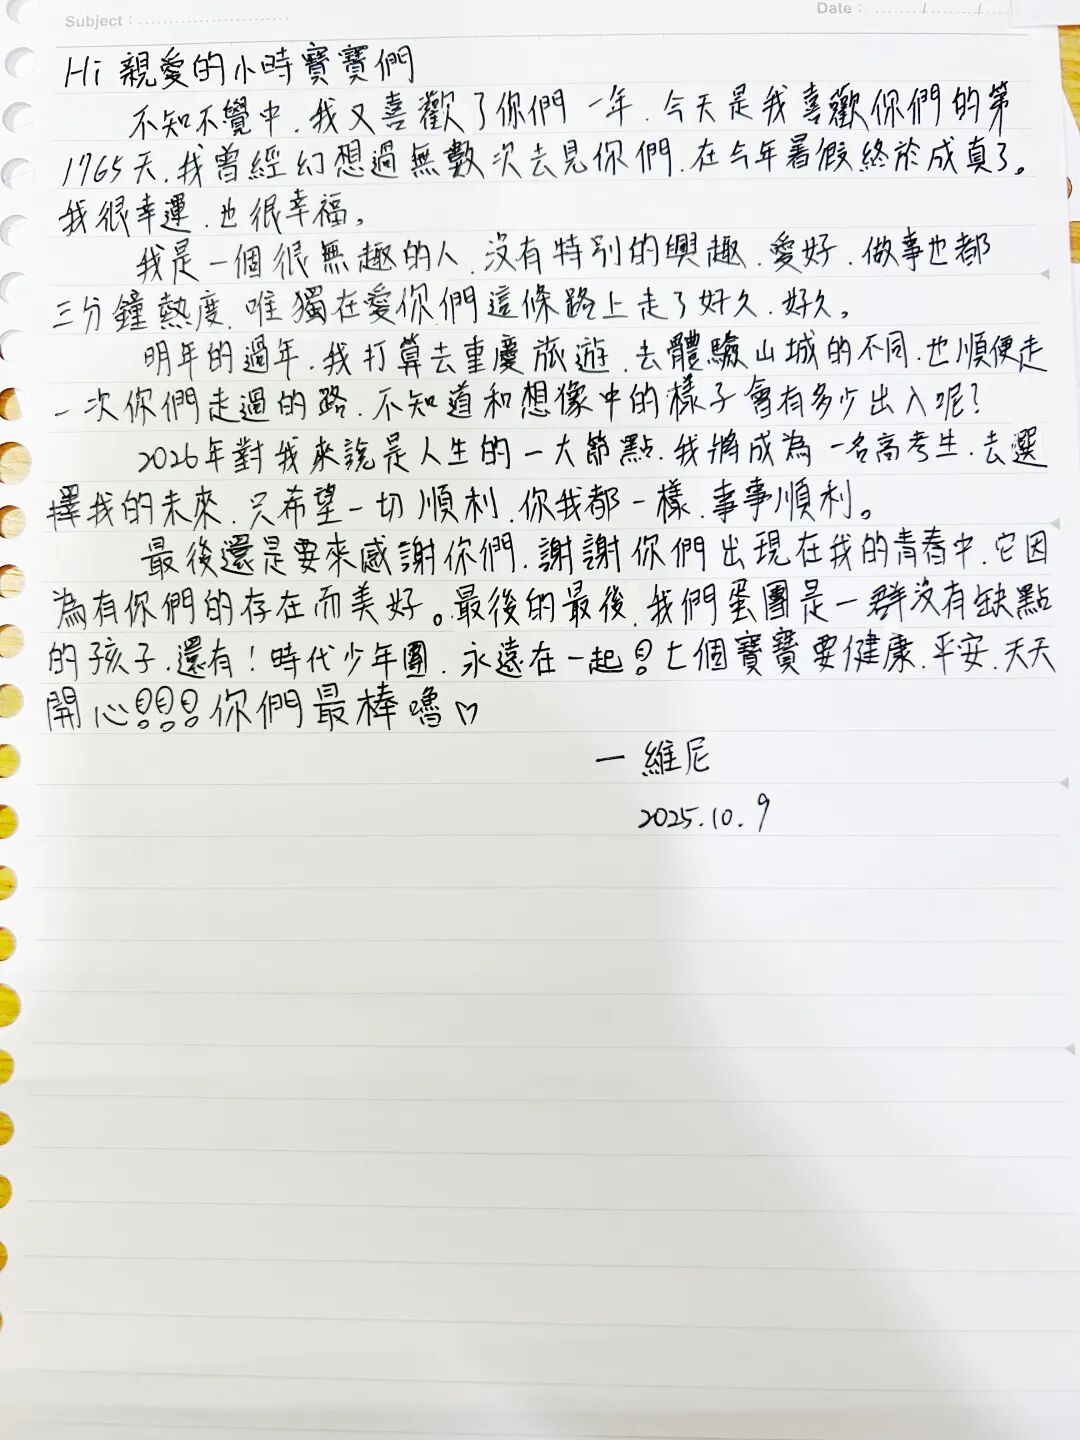 Subject：
Date： / /
Hi 親愛的小時寶寶們
不知不覺中，我又喜歡了你們一年，今天是我喜歡你們的第
1765天，我曾經幻想過無數次去見你們，在今年暑假終於成真了。
我很幸運，也很幸福。
我是一個很無趣的人，沒有特別的興趣、愛好，做事也都
三分鐘熱度，唯獨在愛你們這條路上走了好久、好久。
明年的過年，我打算去重慶旅遊，去體驗山城的不同，也順便走
一次你們走過的路，不知道和想像中的樣子會有多少出入呢？
2026年對我來說是人生的一大節點，我將成為一名高考生，去選
擇我的未來，只希望一切順利，你我都一樣，事事順利。
最後還是要來感謝你們，謝謝你們出現在我的青春中，它因
為有你們的存在而美好。最後的最後，我們蛋團是一群沒有缺點
的孩子，還有！時代少年團，永遠在一起！七個寶寶要健康、平安、天天
開心！！！你們最棒嚕♡
— 維尼
2025.10.9